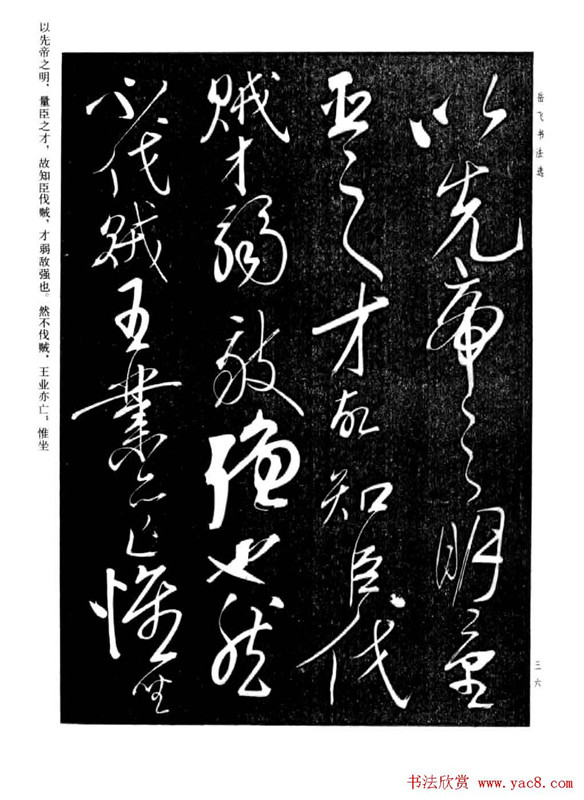 岳飞书法选
以先帝之明量
臣之才故知臣伐
贼才弱敌强也然
不伐贼王业亦亡惟坐
三六
以先帝之明，量臣之才，故知臣伐贼，才弱敌强也。然不伐贼，王业亦亡；惟坐
书法欣赏 www.yac8.com